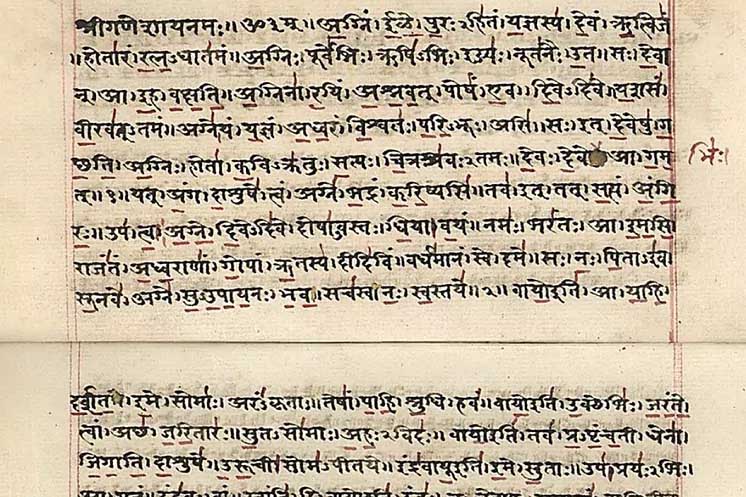 श्रीगणेशायनमः॥ॐ३म्॥अग्निं।ईळे।पुरःऽहितं।यज्ञस्य।देवं।ऋत्विजं
॥होतारं।रत्नऽधातमं॥अग्निः।पूर्वेभिः।ऋषिऽभिः।ईड्यः।नूतनैः।उत॥सः।देवा
न्।आ।इह।वक्षति॥अग्निना।रयिं।अश्नवत्।पोषं।एव।दिवेऽदिवे॥यशसं
वीरवत्ऽतमं॥अग्ने।यं।यज्ञं।अध्वरं।विश्वतः।परिऽभूः।असि॥सः।इत्।देवेषु।ग
च्छति॥अग्निः।होता।कविऽक्रतुः।सत्यः।चित्रश्रवःऽतमः॥देवः।देवे।आ।गम
भिः।
त्॥१॥यत्।अंग।दाशुषे।त्वं।अग्ने।भद्रं।करिष्यसि॥तव।इत्।तत्।सत्यं।अंगि
रः॥उप।त्वा।अग्ने।दिवेऽदिवे।दोषाऽवस्तः।धिया।वयं॥नमः।भरंतः।आ।इमसि
राजंतं।अध्वराणां।गोपां।ऋतस्य।दीदिविं॥वर्धमानं।स्वे।दमे॥सः।नः।पिताऽइव
सूनवे।अग्ने।सुऽउपायनः।भव॥सचस्व।नः।स्वस्तये॥२॥वायोइति।आ।याहि
दर्शत।इमे।सोमाः।अरंऽकृताः॥तेषां।पाहि।श्रुधि।हवं॥वायोइति।उक्थेभिः।जरंते
त्वां।अच्छ।जरितारः॥सुतऽसोमाः।अहःऽविदः॥वायोइति।तव।प्रऽपृंचती।धेना
जिगाति।दाशुषे॥उरूची।सोमऽपीतये॥इंद्रवायूइति।इमे।सुताः॥उप।प्रयःऽभिः।